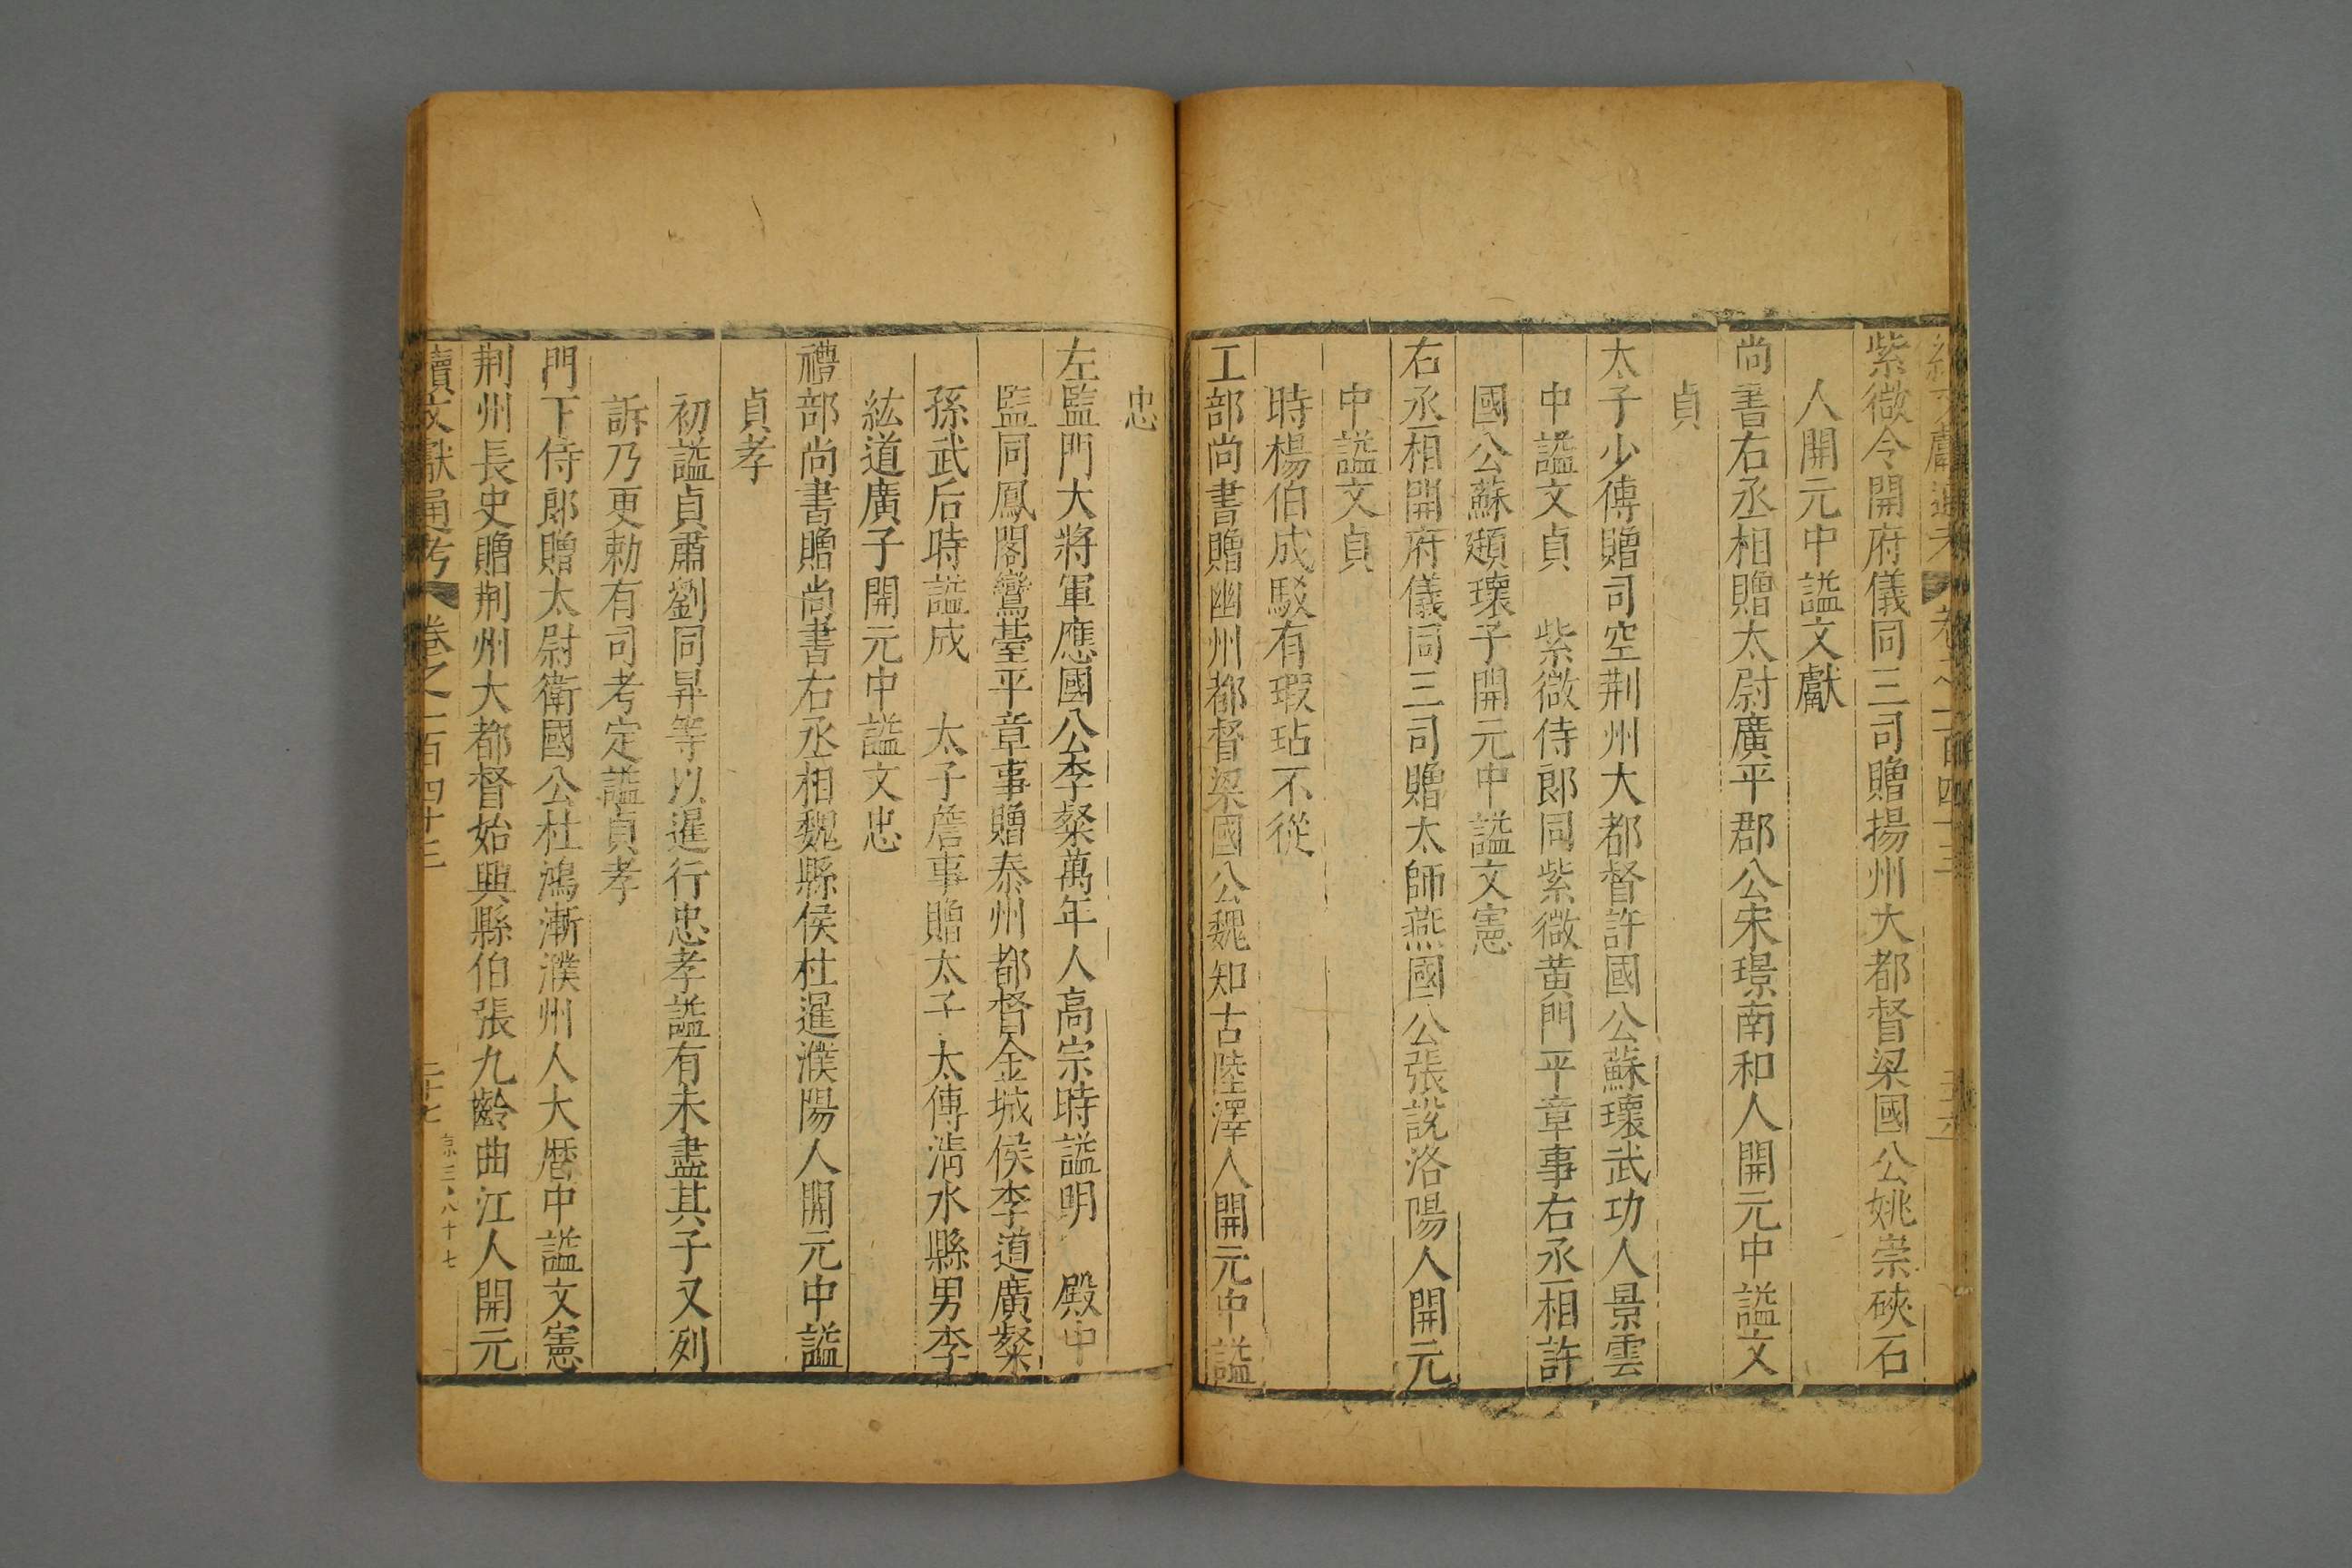 紫微令開府儀同三司贈揚州大都督梁國公姚崇硤石
人開元中謚文獻
尚書右丞相贈太尉廣平郡公宋璟南和人開元中謚文
貞
太子少傅贈司空荆州大都督許國公蘇瓌武功人景雲
中謚文貞 紫微侍郎同紫微黄門平章事右丞相許
國公蘇頲瓌子開元中謚文憲
右丞相開府儀同三司贈太師燕國公張說洛陽人開元
中謚文貞
時楊伯成駁有瑕玷不從
工部尚書贈幽州都督梁國公魏知古陸澤人開元中謚
忠
左監門大將軍應國公李粲萬年人高宗時謚明 殿中
監同鳳閣鸞臺平章事贈泰州都督金城侯李道廣粲
孫武后時謚成 太子詹事贈太子太傅清水縣男李
紘道廣子開元中謚文忠
禮部尚書贈尚書右丞相魏縣侯杜暹濮陽人開元中謚
貞孝
初謚貞肅劉同昇等以暹行忠孝謚有未盡其子又列
訴乃更勑有司考定謚貞孝
門下侍郎贈太尉衛國公杜鴻漸濮州人大曆中謚文憲
荆州長史贈荆州大都督始興縣伯張九齡曲江人開元
續文獻通考 卷之一百四十三 三十七